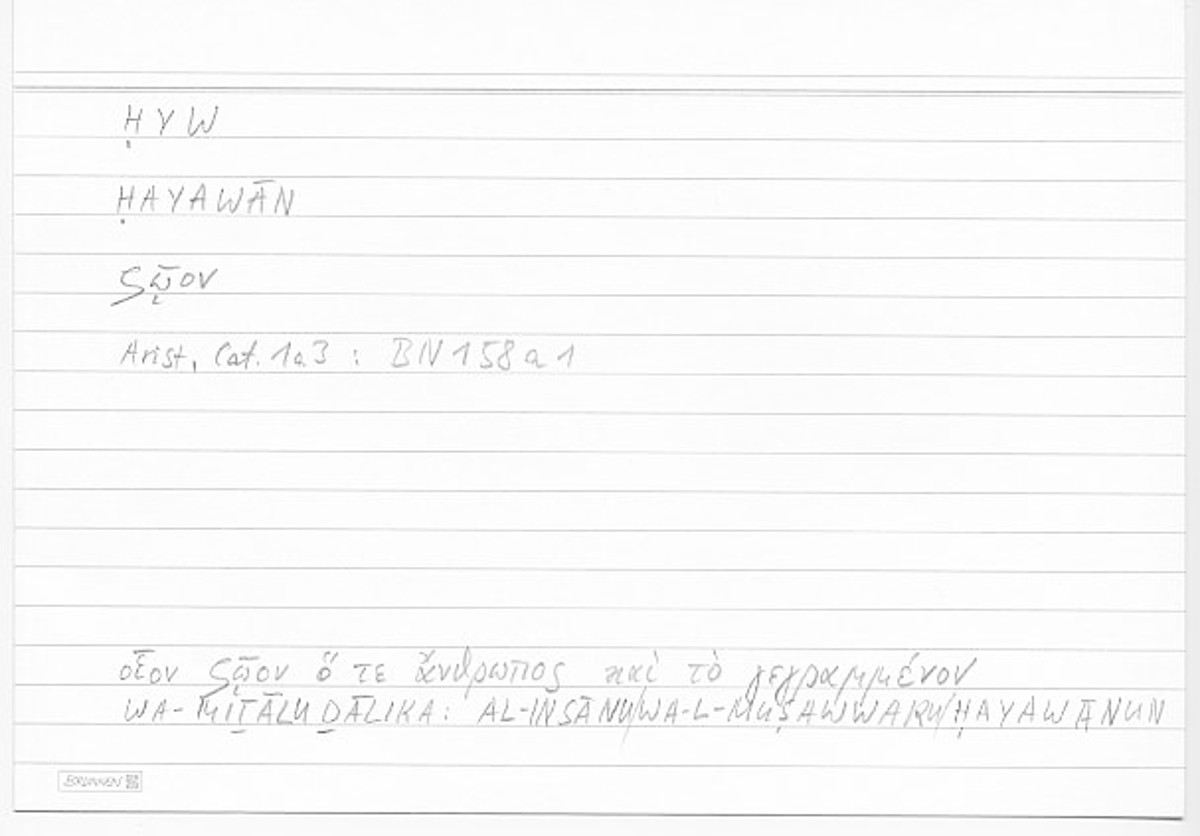 ḤYW
ḤAYAWĀN
ζῷον
Arist, Cat. 1a3 : BN 158a1
οἷον ζῷον ὅ τε ἄνθρωπος καὶ τὸ γεγραμμένον
WA-MIṮĀLU ḎĀLIKA: AL-INSĀNU/WA-L-MUṢAWWARU/ḤAYAWĀNUN
BRUNNEN